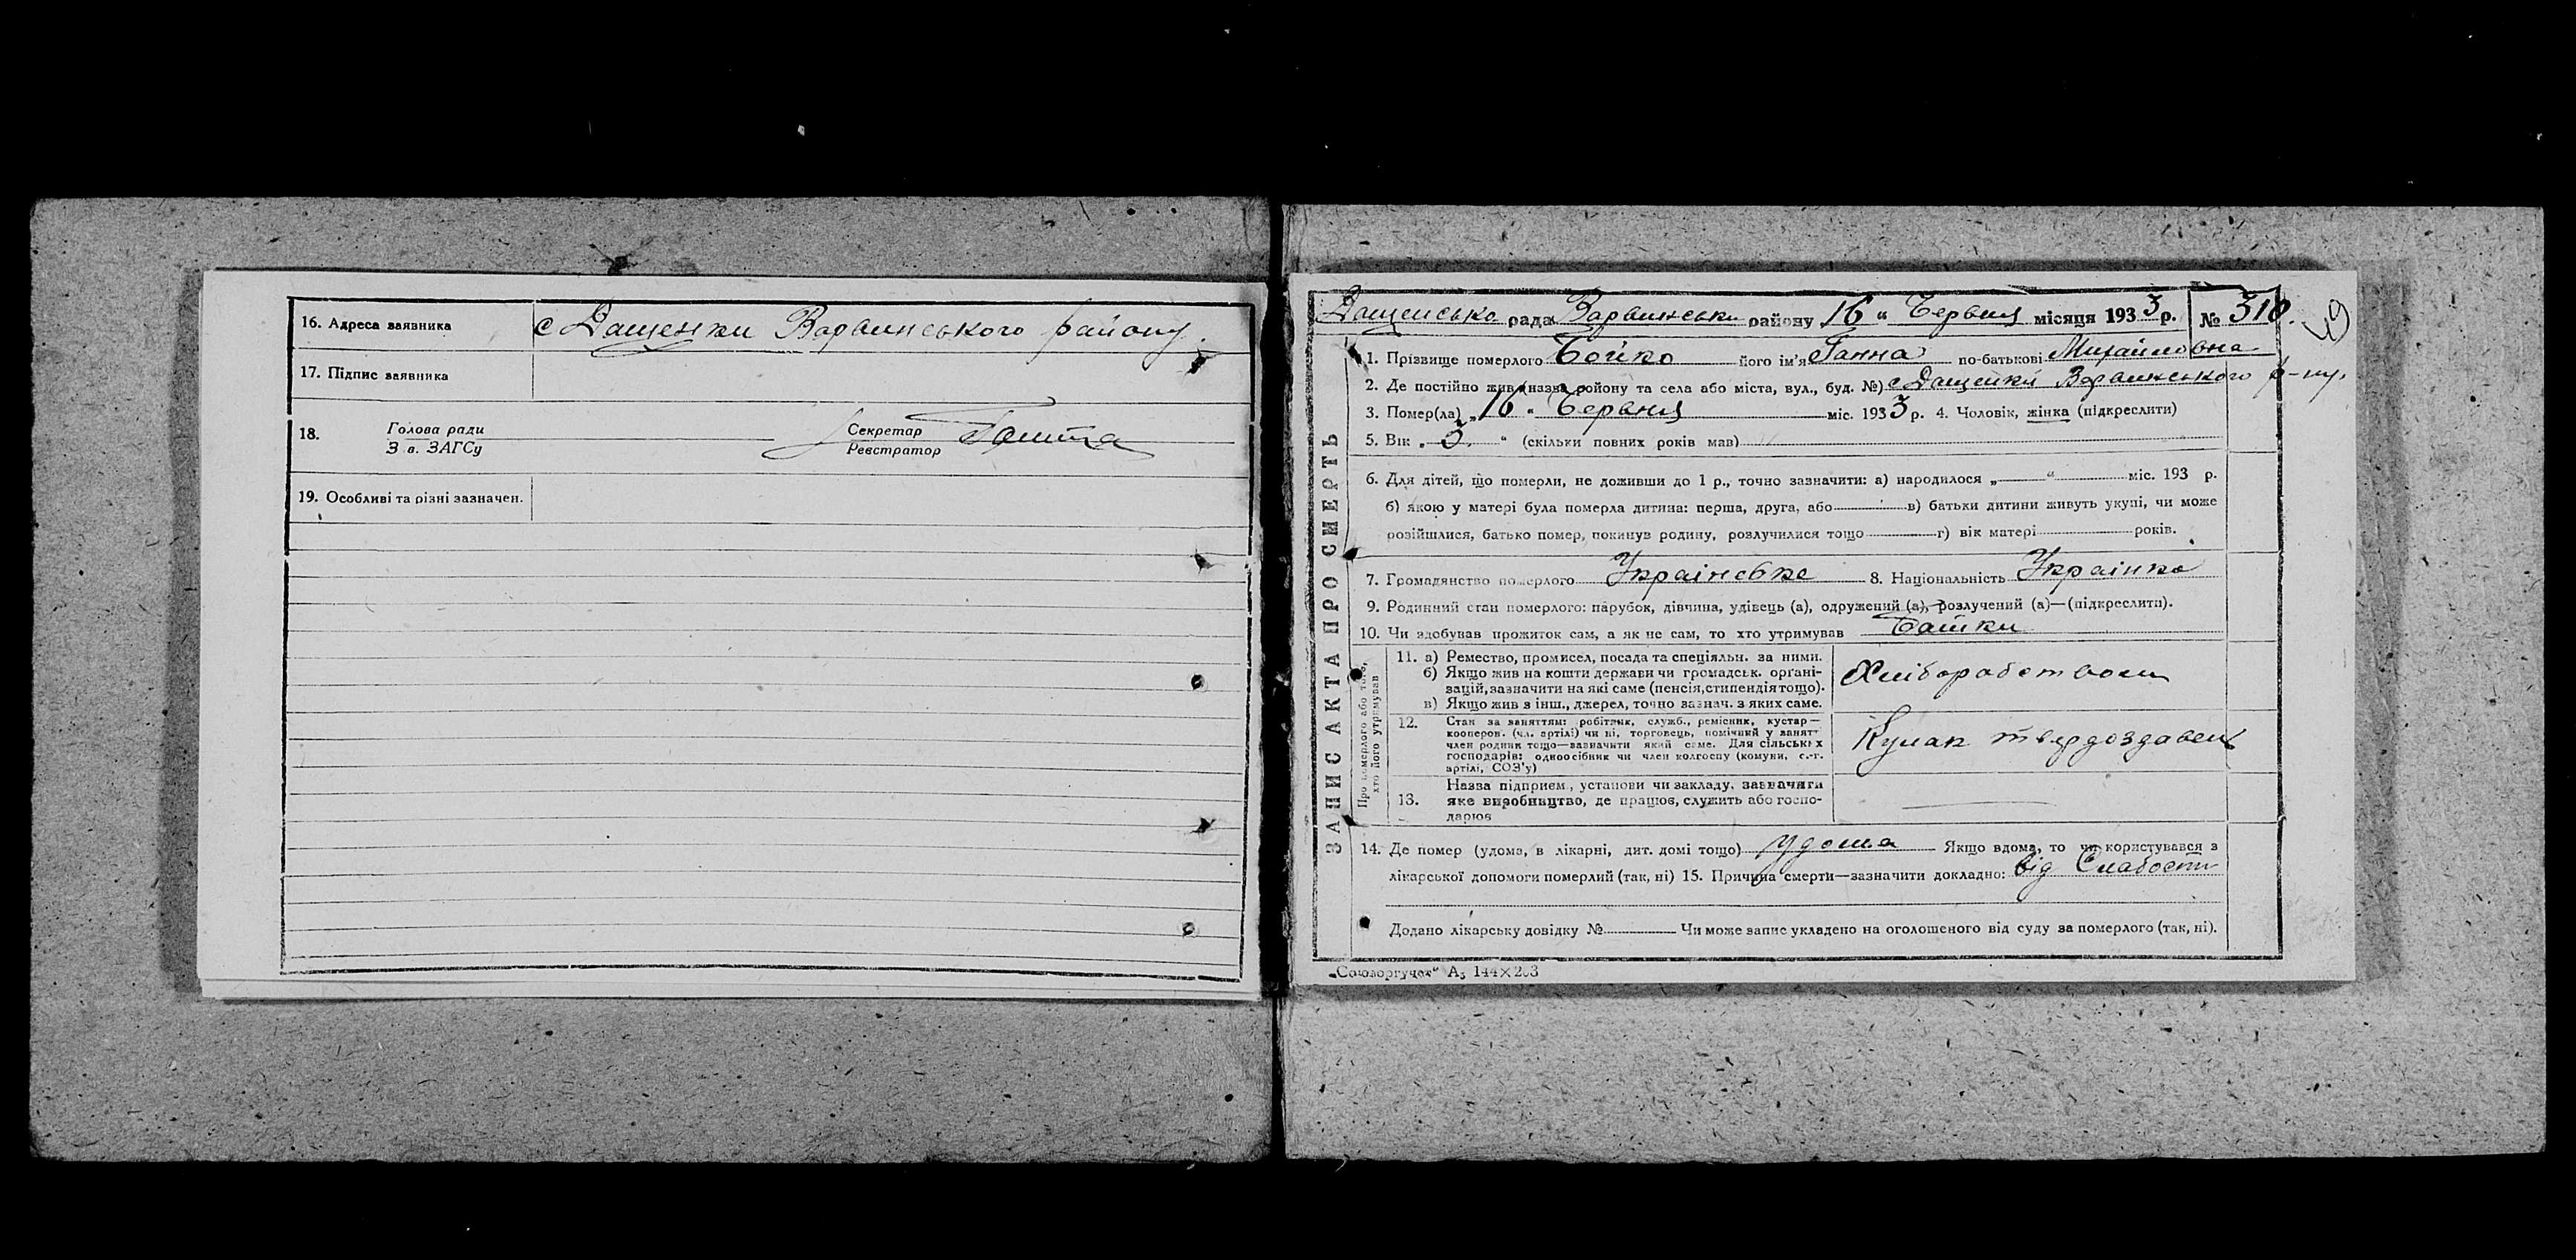 16. Адреса заявника с Дащенки Варвинського району.
17. Підпис заявника
18. Голова ради Секретар
З в. ЗАГСу Реєстратор
19. Особливі та різні зазначен.
Дащенсько рада Варвинськи району 16 " Червня місяця 1933 р. № 310.
49
ЗАПИС АКТА ПРО СМЕРТЬ
1. Прізвище померлого Бойко його ім'я Ганна по-батькові Михайловна
2. Де постійно жив (назва району та села або міста, вул., буд. №) с Дащенки Варвинського р-ну.
3. Помер(ла) „16" Червня міс. 1933 р. 4. Чоловік, жінка (підкреслити)
5. Вік „3." (скільки повних років мав)
6. Для дітей, що померли, не доживши до 1 р., точно зазначити: а) народилося „ " міс. 193 р.
б) якою у матері була померла дитина: перша, друга, або в) батьки дитини живуть укупі, чи може
розійшлися, батько помер, покинув родину, розлучилися тощо г) вік матері років.
7. Громадянство померлого Українське 8. Національність Українка
9. Родинний стан померлого: парубок, дівчина, удівець (а), одружений (а), розлучений (а)—(підкреслити).
10. Чи здобував прожиток сам, а як не сам, то хто утримував Батьки
Про померлого або того, хто його утримував
11. а) Ремество, промисел, посада та спеціяльн. за ними.
б) Якщо жив на кошти держави чи громадськ. органі-
зацій, зазначити на які саме (пенсія, стипендія тощо).
в) Якщо жив з інш., джерел, точно зазнач. з яких саме.
Хліборобством
12. Стан за заняттям: робітник, служб., ремісник, кустар—
кооперов. (чл. артілі) чи ні, торговець, помічний у занятт
член родини тощо—зазначити який саме. Для сільських
господарів: одноосібник чи член колгоспу (комуни, с.-г.
артілі, СОЗ'у)
Кулак твердоздавець
13. Назва підприєм., установи чи закладу, зазначити
яке виробництво, де працює, служить або госпо-
дарює
14. Де помер (удома, в лікарні, дит. домі тощо) удома Якщо вдома, то чи користувався з
лікарської допомоги померлий (так, ні) 15. Причина смерти—зазначити докладно: від Слабости
Додано лікарську довідку № Чи може запис укладено на оголошеного від суду за померлого (так, ні).
„Союзоргучот" А₅ 144×203